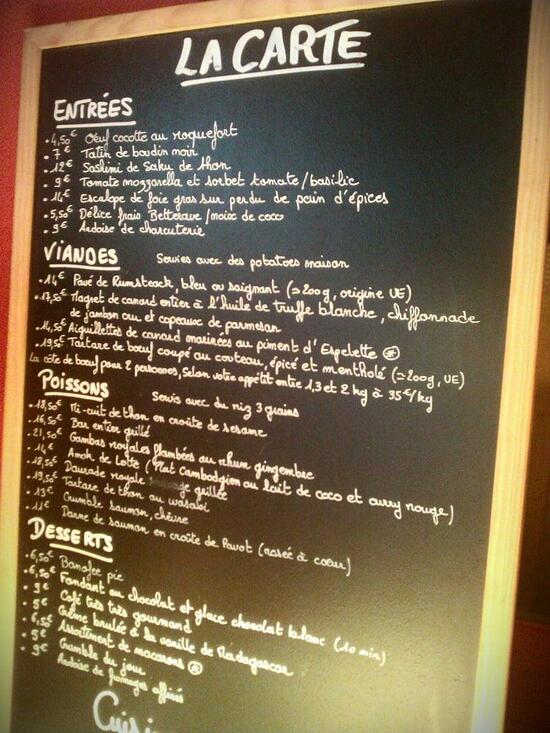 LA CARTE
ENTRÉES
• 4,50€ Oeuf cocotte au roquefort
• 7€ Tatin de boudin noir
• 12€ Sashimi de Saku de thon
• 9€ Tomate mozzarella et sorbet tomate/basilic
• 14€ Escalope de foie gras sur perdu de pain d'épices
• 5,50€ Délice frais Betterave/noix de coco
• 9€ Ardoise de charcuterie
VIANDES Servies avec des potatoes maison
• 14€ Pavé de Rumsteack, bleu ou saignant (≃200g, origine UE)
• 17,50€ Magret de canard entier à l'huile de truffe blanche, chiffonnade
de jambon cru et copeaux de parmesan
• 14,50€ Aiguillettes de canard marinées au piment d'Espelette
• 19,50€ Tartare de bœuf coupé au couteau, épicé et mentholé (≃200g, UE)
La côte de bœuf pour 2 personnes, Selon votre appétit entre 1,3 et 2 kg à 35€/kg
POISSONS Servis avec du riz 3 grains
• 18,50€ Mi-cuit de thon en croûte de sesame
• 16,50€ Bar entier grillé
• 21,50€ Gambas royales flambées au rhum gingembre
• 14€ Amok de Lotte (Plat Cambodgien au lait de coco et curry rouge)
• 18,50€ Daurade royale grillée
• 19,50€ Tartare de thon au wasabi
• 13€ Crumble saumon, chèvre
• 11€ Darne de saumon en croûte de Pavot (rosée à coeur)
DESSERTS
• 6,50€ Banofee pie
• 6,50€ Fondant au chocolat et glace chocolat blanc (10 min)
• 9€ Café très très gourmand
• 5€ Crème brulée à la vanille de Madagascar
• 6,50€ Assortiment de macarons
• 5€ Crumble du jour
• 9€ Ardoise de fromages affinés